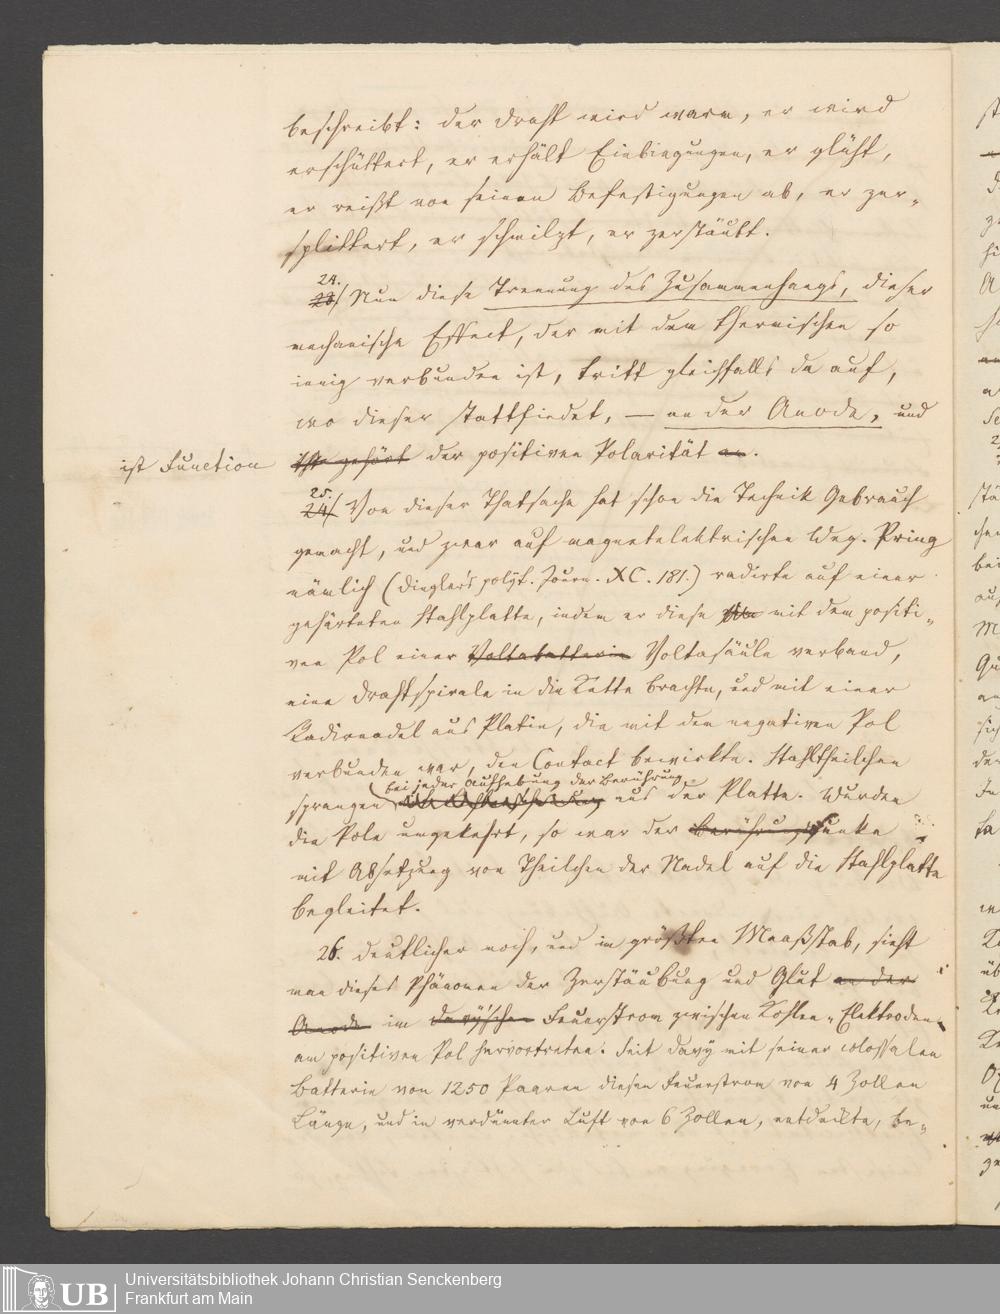 beschreibt: der Draht wird warm, er wird
erschüttert, er erhält Einbiegungen, er glüht,
er reißt von seinen Befestigungen ab, er zer-
splittert, er schmilzt, er zerstäubt.
24.
23/ Nun diese Trennung des Zusammenhangs, dieser
mechanische Effect, der mit dem thermischen so
innig verbunden ist, tritt gleichfalls da auf,
wo dieser stattfindet, — an der Anode, und
ist Function gehört der positiven Polarität an.
25.
24/ Von dieser Thatsache hat schon die Technik Gebrauch
gemacht, und zwar auf magnetelektrischen Weg. Pring
nämlich (Dingler's polyt. Journ. XC. 181.) radirte auf einer
gehärteten Stahlplatte, indem er diese mit dem positi-
ven Pol einer Voltabatterie Voltasäule verband,
eine Drahtspirale in die Kette brachte, und mit einer
Radirnadel aus Platin, die mit den negativen Pol
verbunden war, den Contact bewirkte. Stahltheilchen
bei jeder Aufhebung der Berührung
sprangen aus der Platte. Wurden
die Pole umgekehrt, so war der Berührungsfunke
mit Absetzung von Theilchen der Nadel auf die Stahlplatte
begleitet.
26. Deutlicher noch, und im größten Maaßstab, sieht
man dieses Phänomen der Zerstäubung und Glut an der
Anode im Davy'schen Feuerstrom zwischen Kohlen-Elektroden
am positiven Pol hervortreten. Seit Davy mit seiner colossalen
Batterie von 1250 Paaren diesen Feuerstrom von 4 Zollen
Länge, und in verdünnter Luft von 6 Zollen, entdeckte, be-
UB
Universitätsbibliothek Johann Christian Senckenberg
Frankfurt am Main